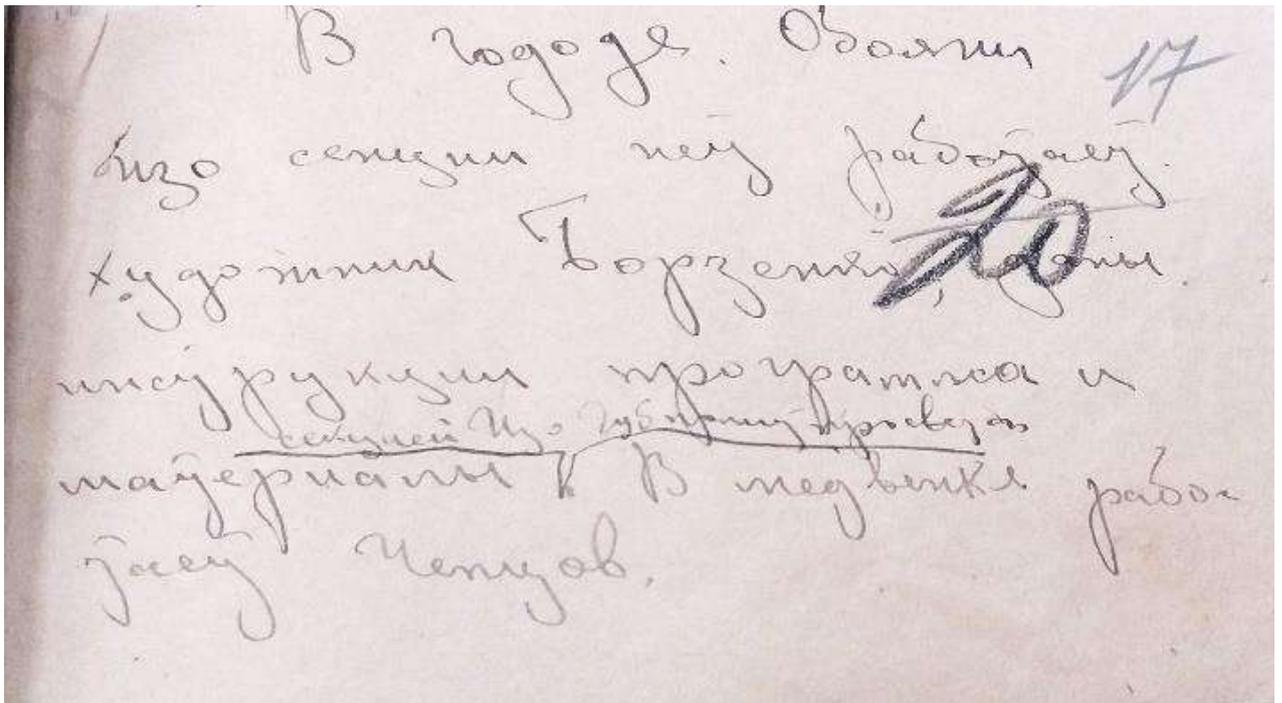 В городе. Обояни
17
Изо секции нет работает.
художник Борзенко, даны.
20
инструкции программа и
секцией Изо Губ просвета
материалы В Медвенке рабо-
тает Чепцов.